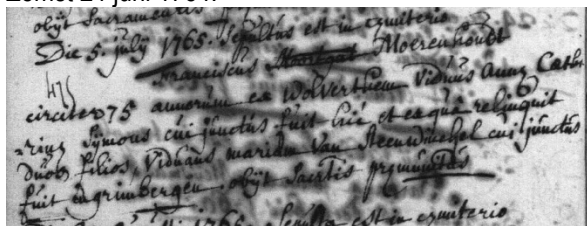 obijt Sacramentis
Die 5. julij 1765. Sepultus est in cemiterio
Franciscus Moerenhoudt
475
circiter 75 annorum ex Wolverthem Viduus Annæ Cathe
rinæ Sijmons cui junctus fuit hic et ex qua relinquit
duos filios, Viduans mariam Van Steenwinckel cui junctus
fuit in grimbergen obijt Sacrtis præmunitus
1765. Sepultus est in cemiterio